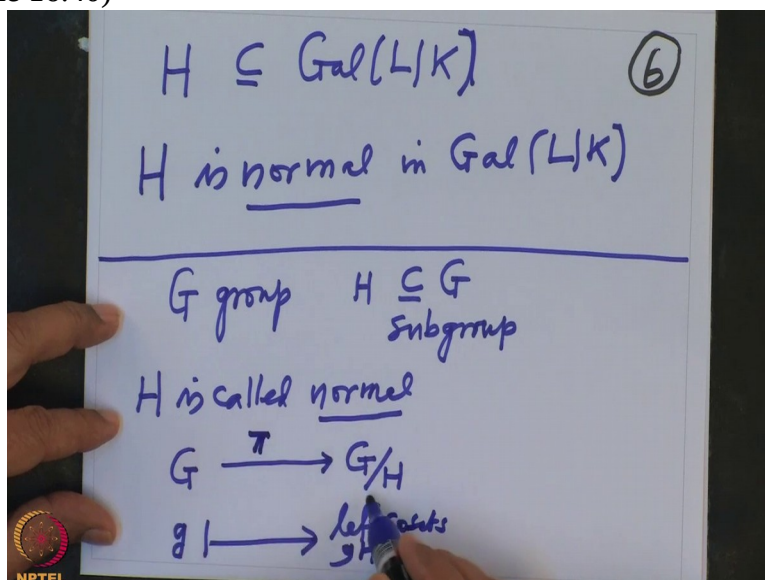 H ⊆ Gal(L|K)
6
H is normal in Gal(L|K)
G group H ⊆ G
subgroup
H is called normal
G —π→ G/H
g ↦ left cosets
gH
NPTEL